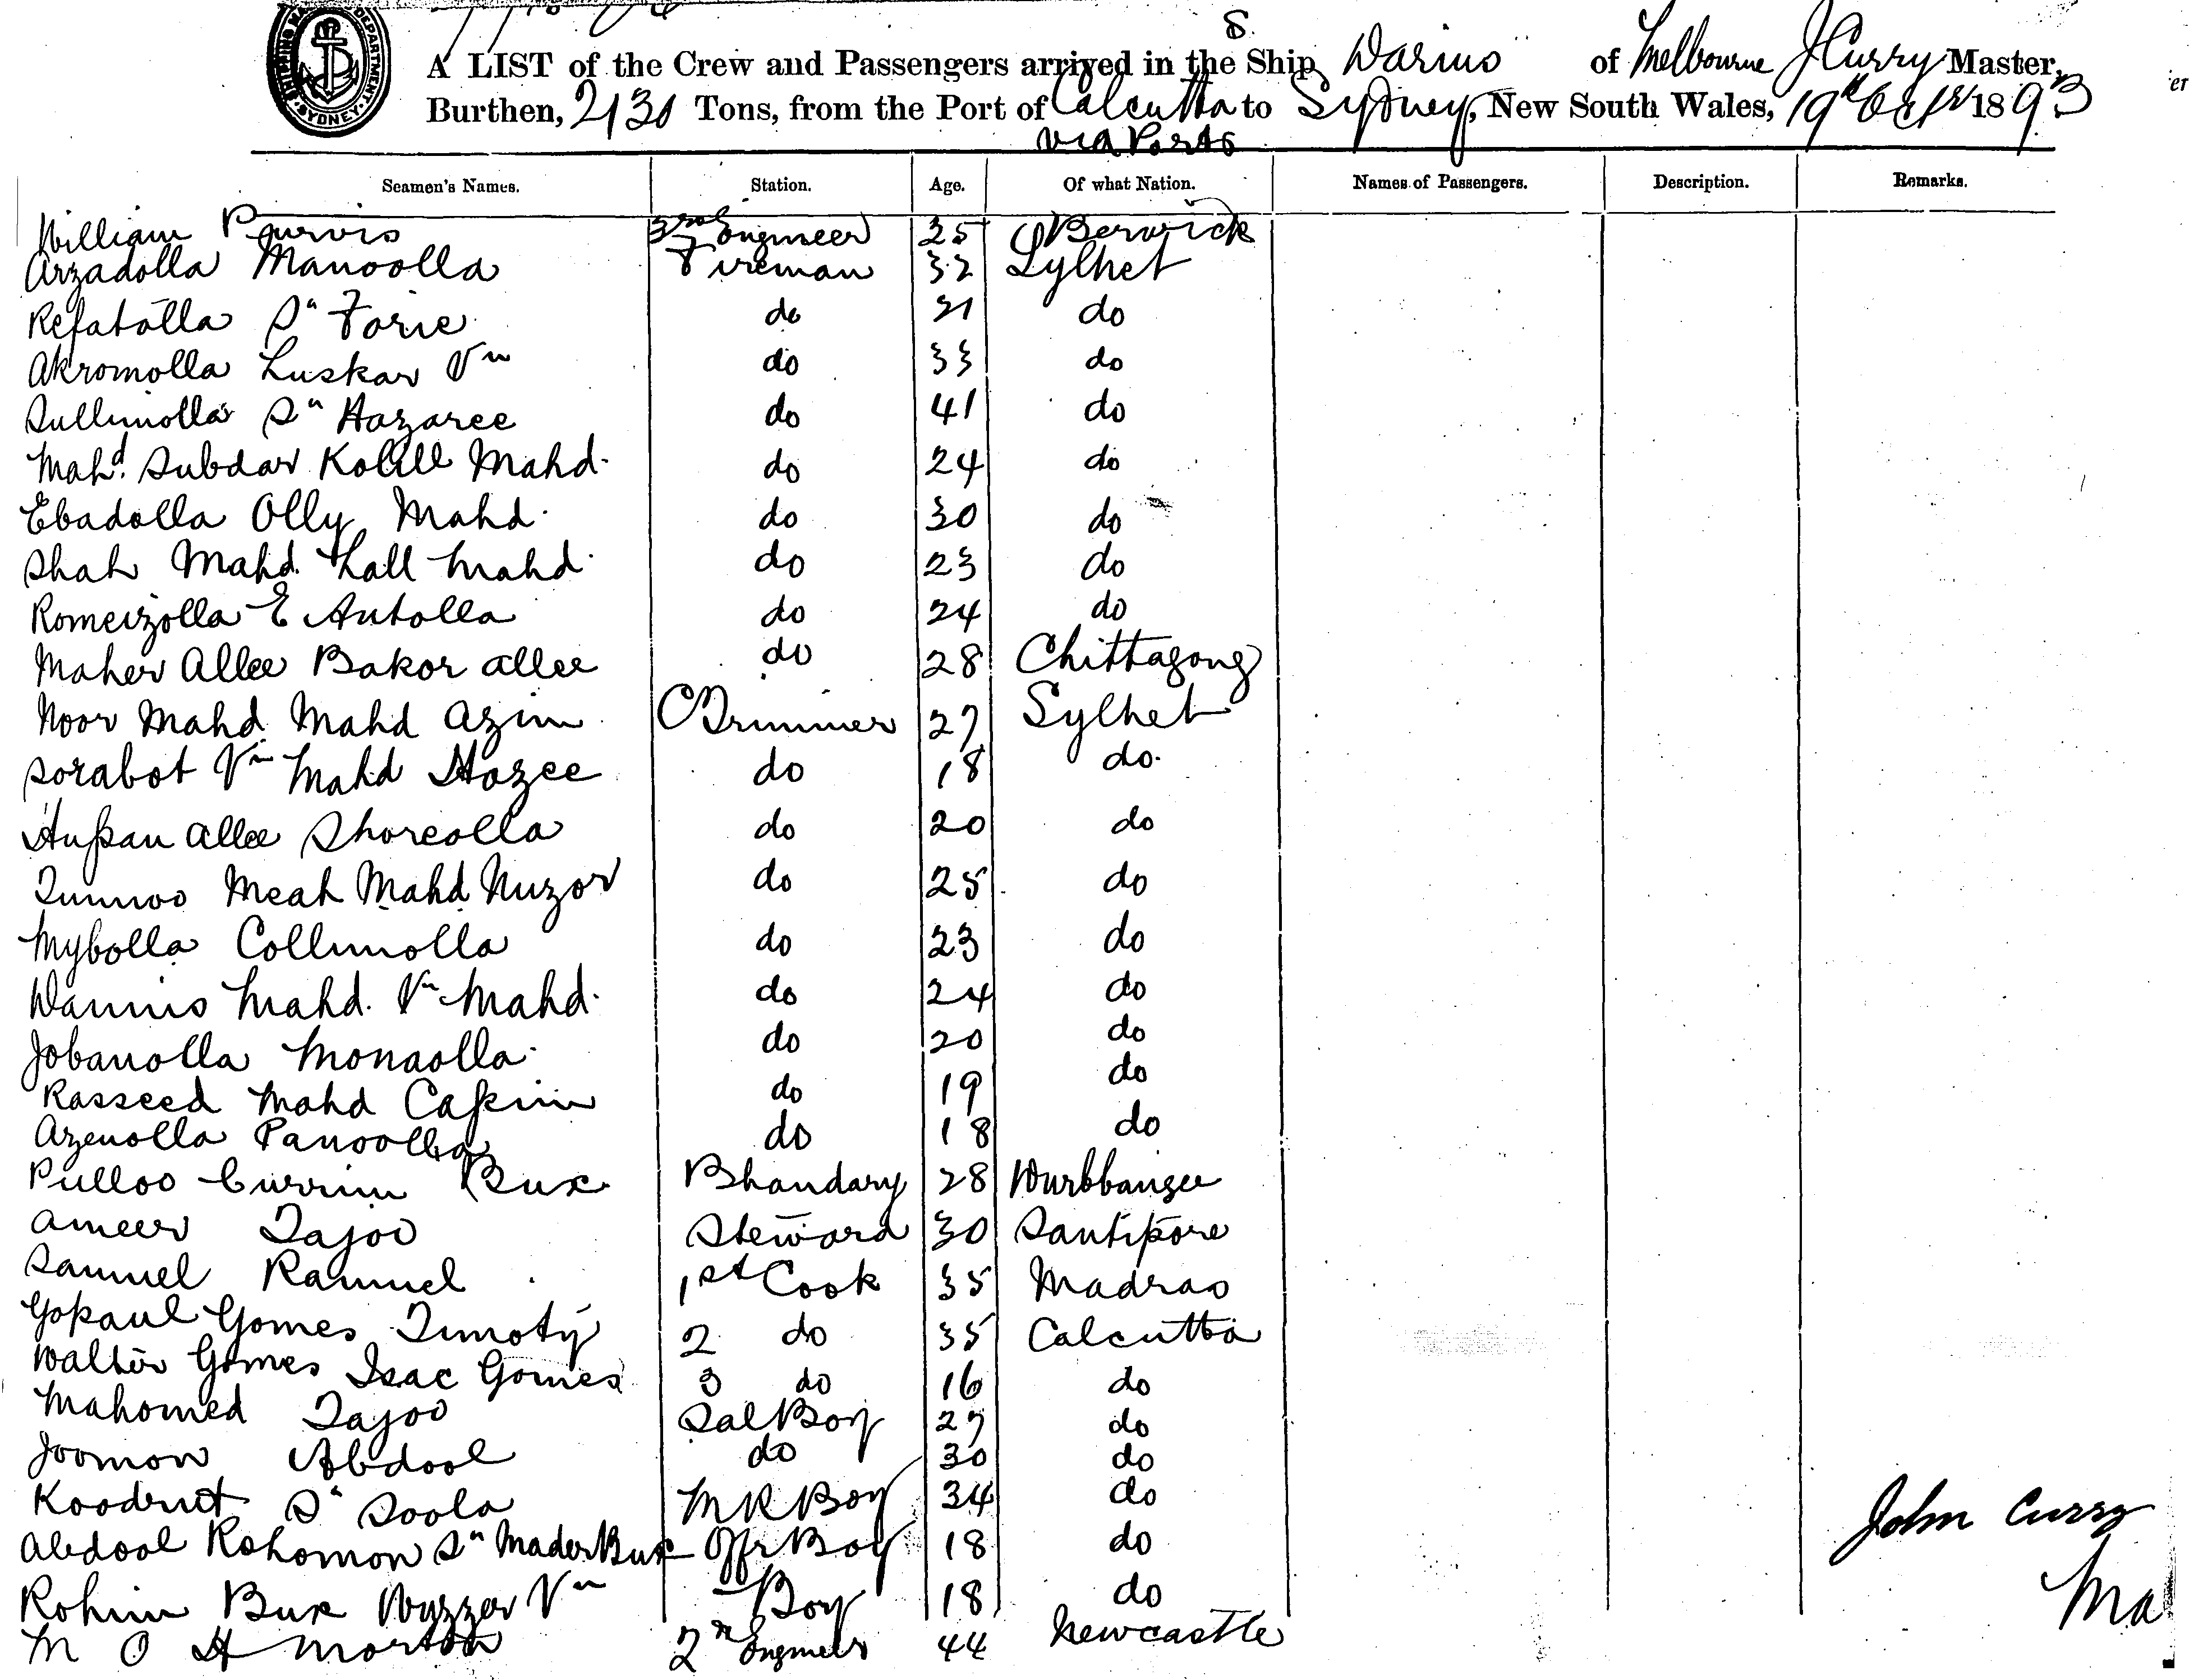 SHIPPING MASTER DEPARTMENT SYDNEY
8
A LIST of the Crew and Passengers arrived in the Ship Darius of Melbourne J Curry Master,
Burthen, 2130 Tons, from the Port of Calcutta to Sydney, New South Wales, 19th Octr 1893
via Ports
Seamen's Names. Station. Age. Of what Nation. Names of Passengers. Description. Remarks.
William Purvis 3rd Engineer 25 Berwick
Arzadolla Manoolla Fireman 32 Sylhet
Refatolla Sn Forie do 31 do
Akromolla Luskar Vn do 33 do
Sullimolla Sn Hazaree do 41 do
Mahd. Subdar Kolill Mahd. do 24 do
Ebadolla Olly Mahd. do 30 do
Shah Mahd. Lall Mahd. do 23 do
Romeizolla E Autolla do 24 do
Maher Allee Bakor allee do 28 Chittagong
Noor Mahd Mahd Azim Trimmer 27 Sylhet
Sorabot Vn Mahd Hazee do 18 do.
Hussan allee Shoreolla do 20 do
Tunnoo Meah Mahd Nuzor do 25 do
Mybolla Collimolla do 23 do
Dannis Mahd. Vn Mahd. do 24 do
Jobanolla Monaolla do 20 do
Rasseed Mahd Cassim do 19 do
Azenolla Panoolla do 18 do
Pulloo Currim Bux Bhandary 28 Durbbangee
Ameer Tajoo Steward 30 Santipore
Samuel Ramuel 1st Cook 35 Madras
Gopaul Gomes Timoty 2 do 35 Calcutta
Walter Gomes Isac Gomes 3 do 16 do
Mahomed Tajoo Sal Boy 27 do
Joomon Abdool do 30 do
Koodrut Sn Soola M R Boy 34 do
Abdool Rohomon Sn Mader Bux Offr Boy 18 do
John Curry
Rohim Bux Wyzzer Vn Boy 18 do
Ma
M O H Morton 2n Engineer 44 Newcastle